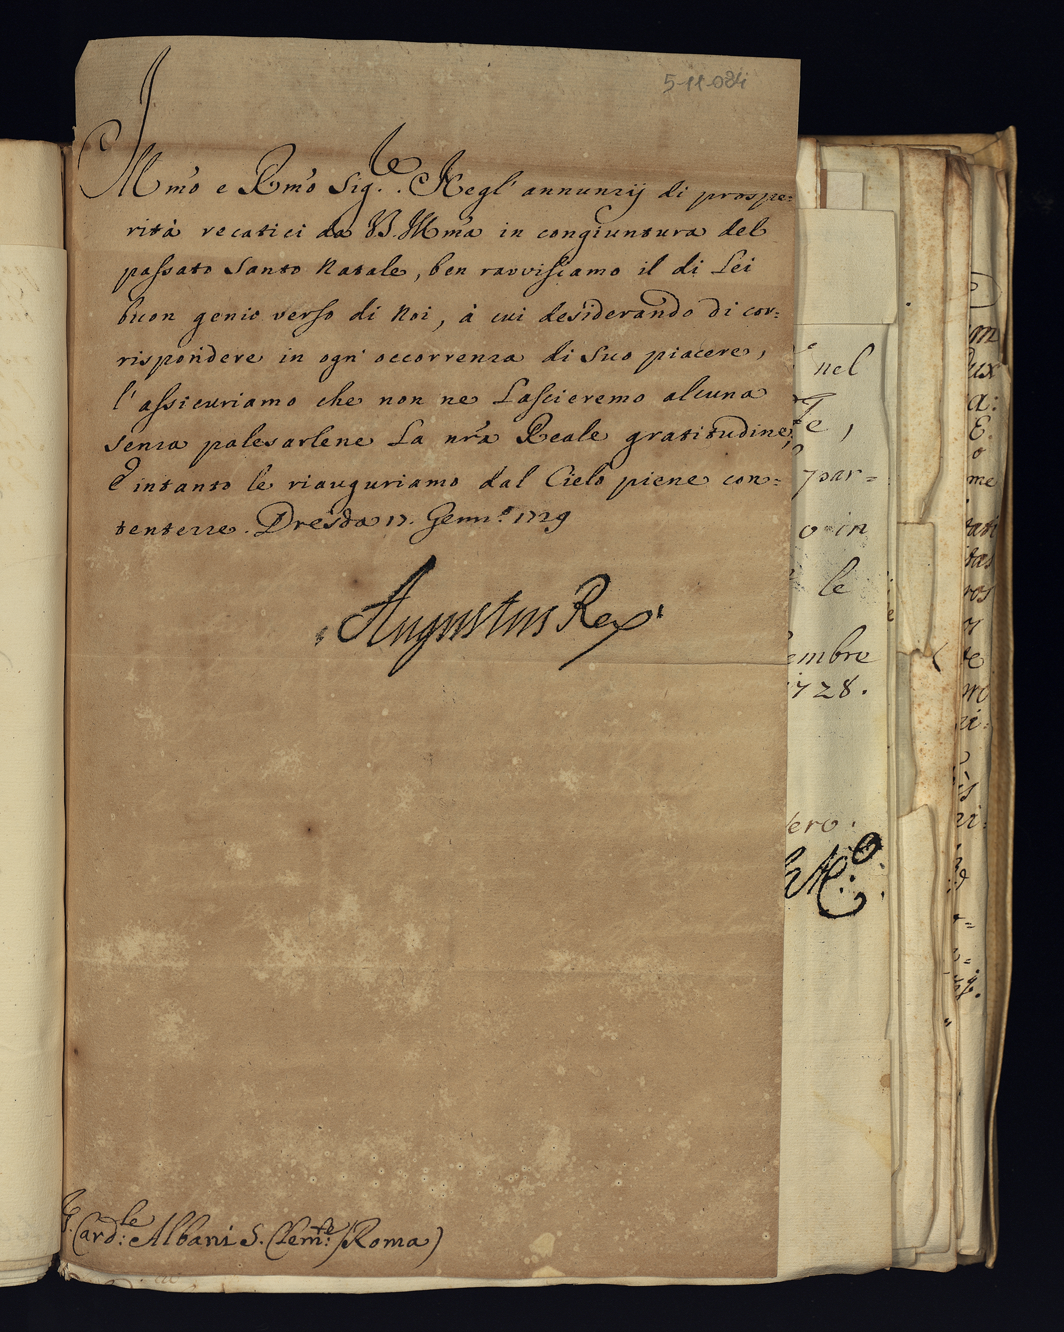 5-11-084
Ill͞mo e R͞mo Sig.re. Negl' annunzij di prospe:
rità recatici da V. Ill͞ma in congiuntura del
passato Santo Natale, ben ravvisiamo il di Lei
buon genio verso di Noi, à cui desiderando di cor:
rispondere in ogni occorrenza di Suo piacere,
l'assicuriamo che non ne Lascieremo alcuna
senza palesarlene La nr̃a Reale gratitudine,
E intanto le riauguriamo dal Cielo piene con:
tentezze. Dresda 17. Genn.o 1729
Augustus Rex
Card:le Albani S. Clem:te (Roma)
nel
e,
par-
o in
le
embre
1728.
ero.